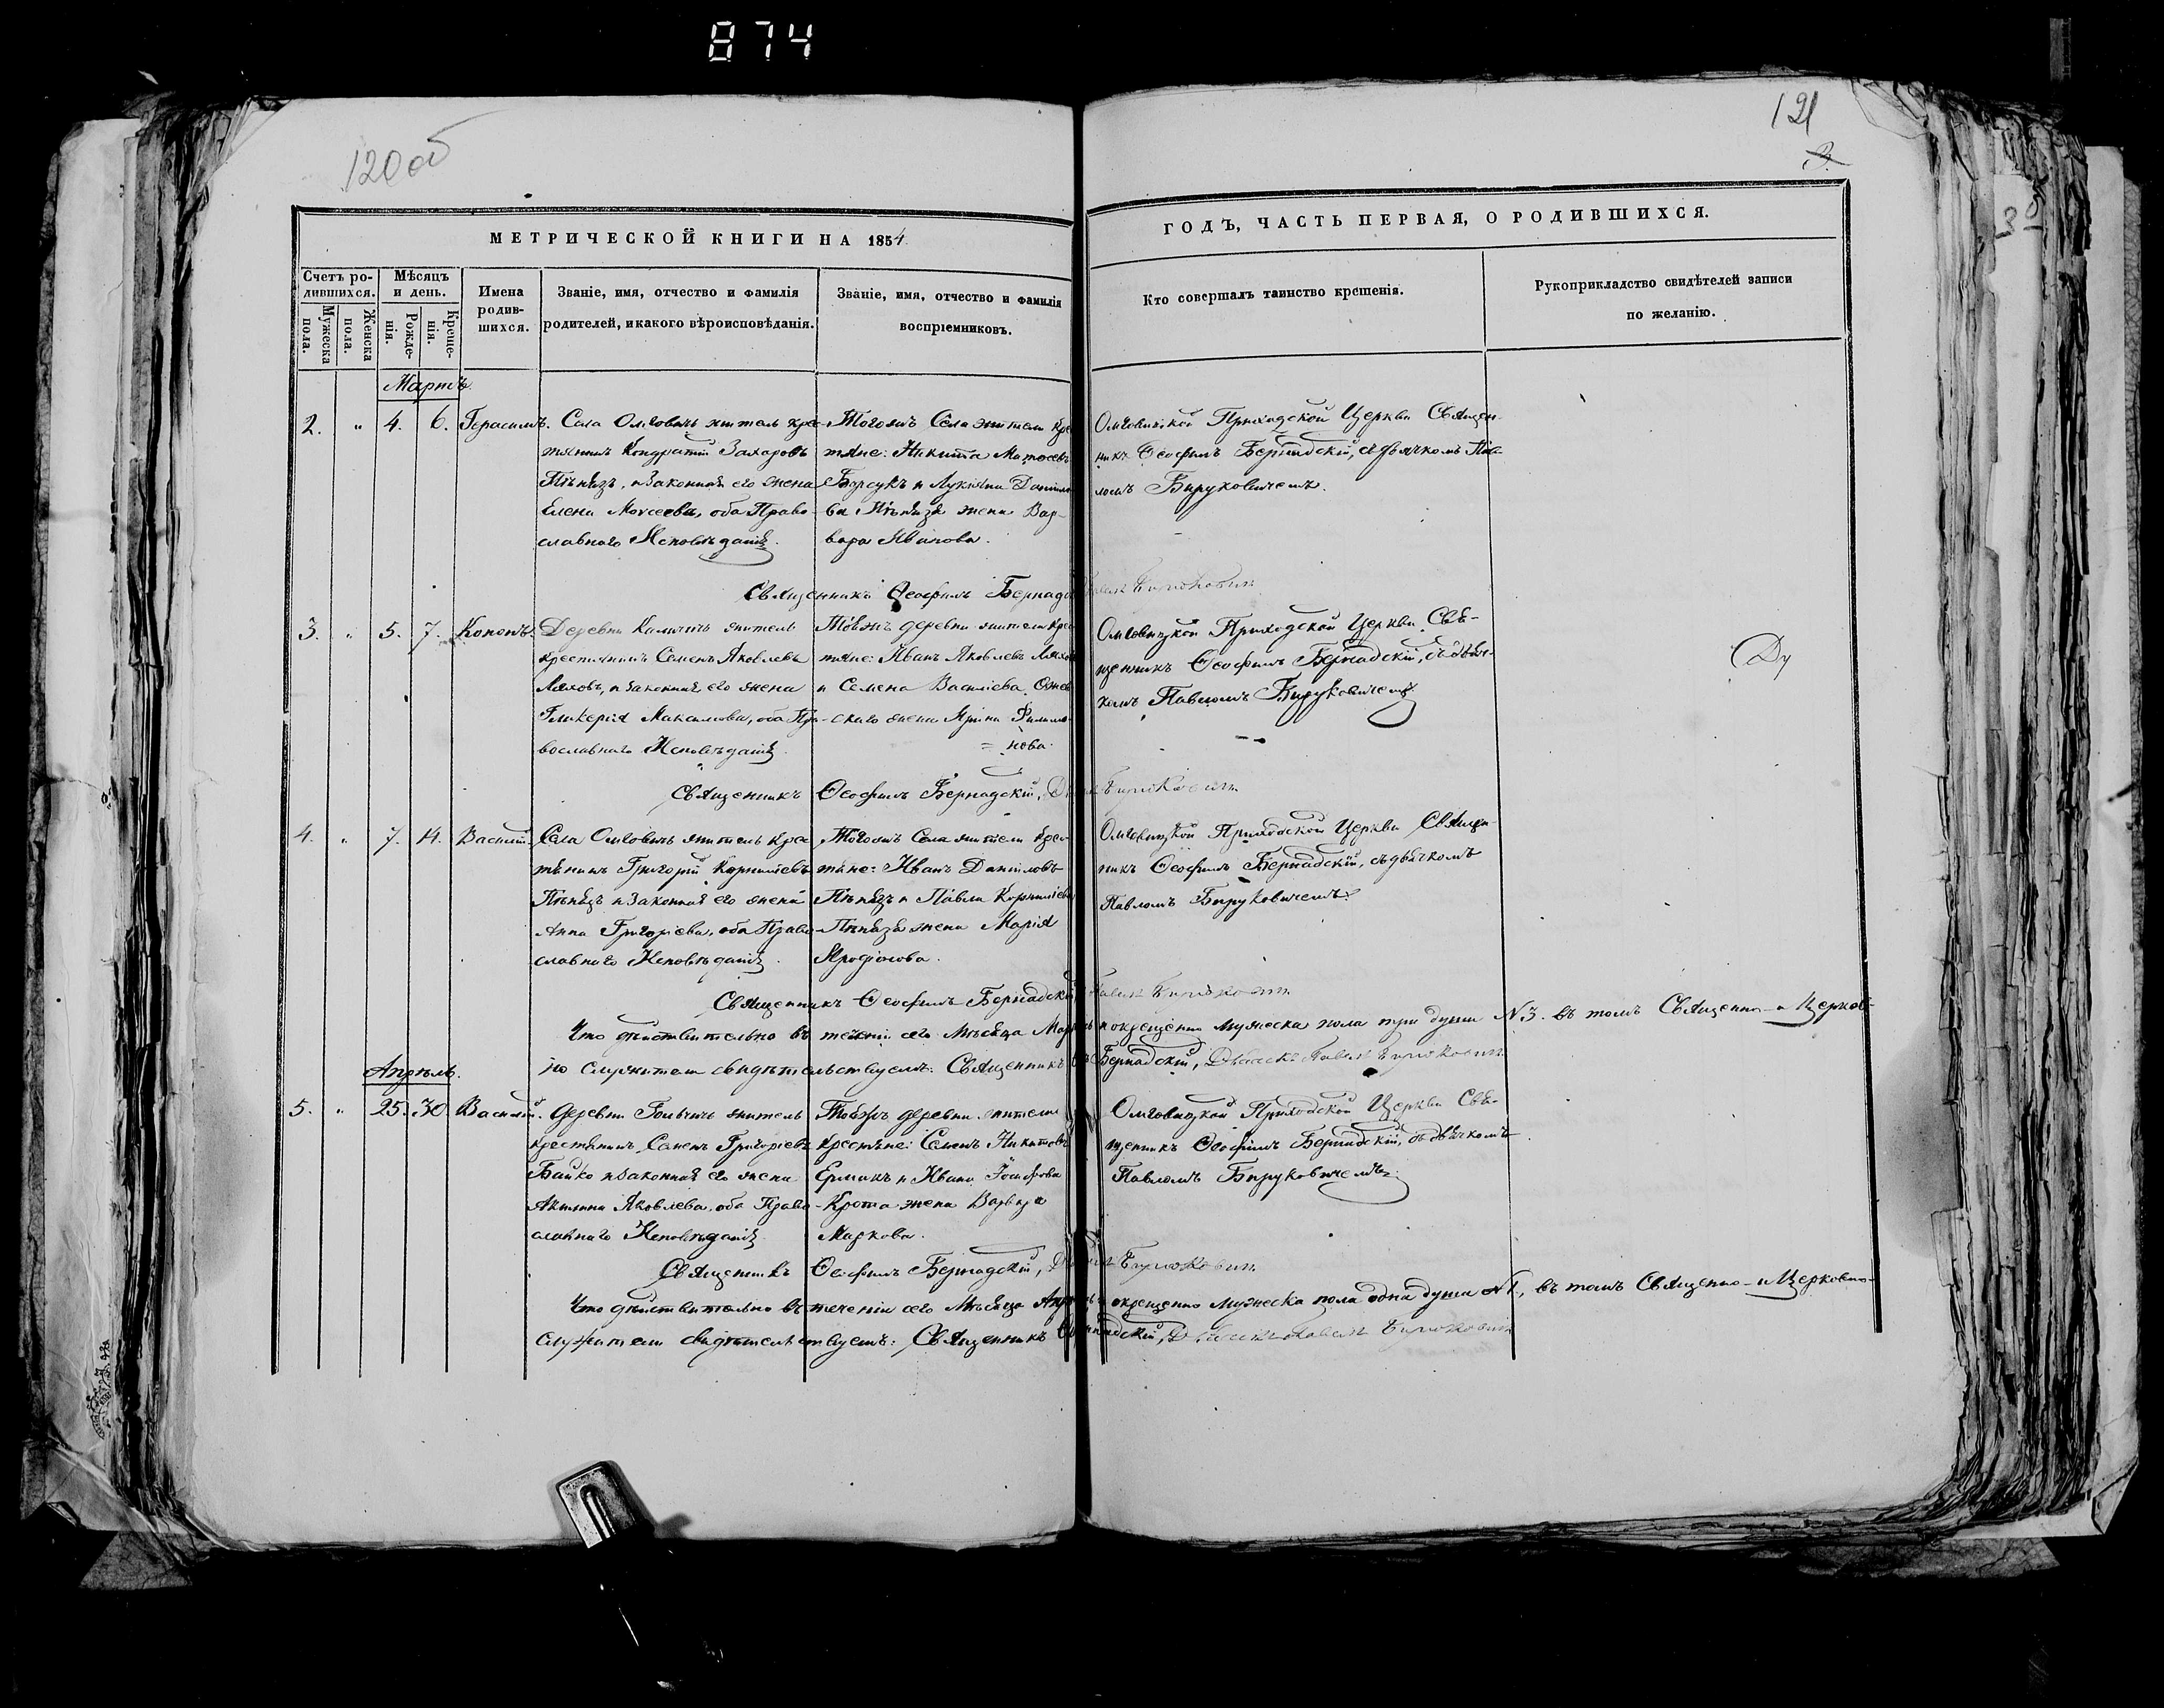 874
120 об
121
3.
МЕТРИЧЕСКОЙ КНИГИ НА 1854
ГОДЪ, ЧАСТЬ ПЕРВАЯ, О РОДИВШИХСЯ.
Счетъ ро-
дившихся.
Мужеска
пола.
Женска
пола.
Мѣсяцъ
и день.
Рожде-
нія.
Креще-
нія.
Имена
родив-
шихся.
Званіе, имя, отчество и фамилія
родителей, и какого вѣроисповѣданія.
Званіе, имя, отчество и фамилія
воспріемниковъ.
Кто совершалъ таинство крещенія.
Рукоприкладство свидѣтелей записи
по желанію.
Мартъ
2. " 4. 6. Герасимъ.
Села Омговичъ житель кре-
тянинъ Кондратій Захаровъ
Пѣнязь, и законная его жена
Елена Моисеева, оба Право-
славнаго Исповѣданія.
Тогожъ Села жители кре
тяне: Никита Матѳеевъ
Барсукъ и Лукіяна Данило
ва Пѣнязя жена Вар-
вара Иванова.
Омговицкой Приходской Церкви Священ-
никъ Ѳеофилъ Бернадскій, съ дьячкомъ Пав
ломъ Бируковичемъ.
Священникъ Ѳеофилъ Бернадс
3. " 5. 7. Кононъ.
Деревни Калчичъ житель
крестянинъ Семенъ Яковлевъ
Ляховъ, и законная его жена
Гликерія Максимова, оба Пра-
вославнаго Исповѣданія.
Тоежъ деревни жители кре
тяне: Иванъ Яковлевъ Ляхов
и Семена Василіева
скаго жена Ярина Филимо-
= нова.
Омговицкой Приходской Церкви Свя-
щенникъ Ѳеофилъ Бернадскій, съ дьяч-
комъ Павломъ Бируковичемъ
Священникъ Ѳеофилъ Бернадскій,
4. " 7. 14. Василій.
Села Омговичъ житель кре
тянинъ Григорій Корниліевъ
Пѣнязь и законная его жена
Анна Григоріева, оба Право-
славнаго Исповѣданія.
Тогожъ Села жители кре-
тяне: Иванъ Даниловъ
Пѣнязь и Павла Корниліева
Пѣнязя жена Марія
Омговицкой Приходской Церкви Священ-
никъ Ѳеофилъ Бернадскій, съ дьячкомъ
Павломъ Бируковичемъ.
Священникъ Ѳеофилъ Бернадскій
Что дѣйствительно въ теченіи сего Мѣсяца Мар окрещенно мужеска пола три души N.3. въ томъ Священно-и Церков-
но служители свидѣтельствуемъ: Священникъ Бернадскій, Дьячекъ Павелъ Бирюковичъ
Апрѣль.
5. " 25. 30. Василій.
Деревни житель
крестянинъ Семенъ Григоріевъ
Байко и законная его жена
Акилина Яковлева, оба Право-
славнаго Исповѣданія.
Тоежъ деревни жители
крестяне: Семенъ Никитовъ
Ермакъ и Ивана Іосифова
Крота жена Варвара
Маркова.
Омговицкой Приходской Церкви Свя-
щенникъ Ѳеофилъ Бернадскій, съ дьячкомъ
Павломъ Бируковичемъ.
Священникъ Ѳеофилъ Бернадскій, Бирюковичъ
Что дѣйствительно въ теченіи сего Мѣсяца Апр окрещенно мужеска пола одна душа N 1, въ томъ Священно-и Церковно-
служители свидѣтельствуемъ: Священникъ Дьячекъ Павелъ Бирюковичъ